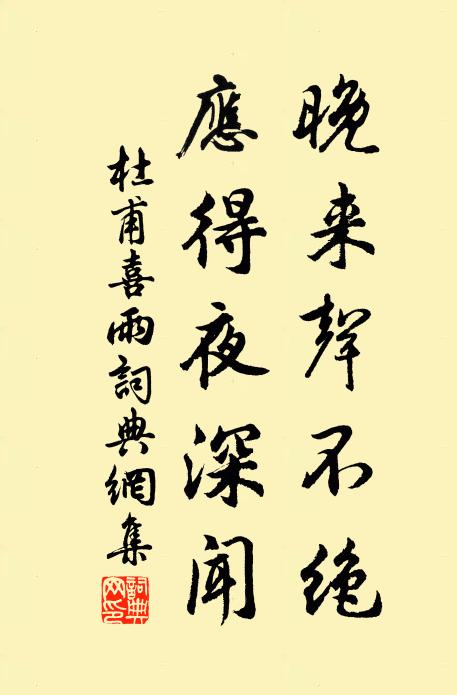 晚来聲不绝
應得夜深闻
杜甫喜雨詞典網集
詞典网印